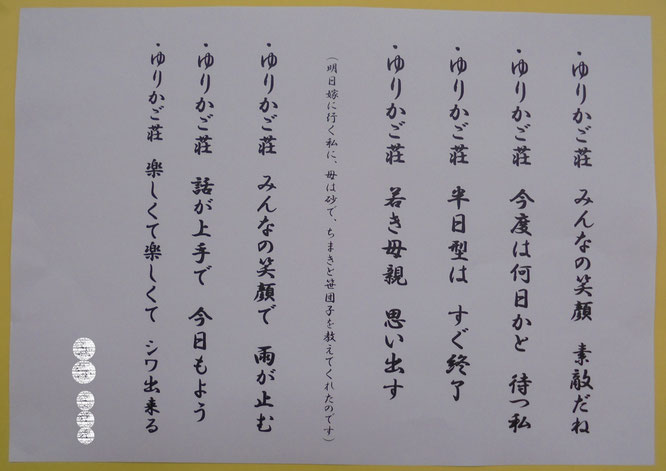 ・ゆりかご荘　みんなの笑顔　素敵だね
・ゆりかご荘　今度は何日かと　待つ私
・ゆりかご荘　半日型は　すぐ終了
・ゆりかご荘　若き母親　思い出す
（明日嫁に行く私に、母は砂で、ちまきと笹団子を教えてくれたのです）
・ゆりかご荘　みんなの笑顔で　雨が止む
・ゆりかご荘　話が上手で　今日もよう
・ゆりかご荘　楽しくて楽しくて　シワ出来る